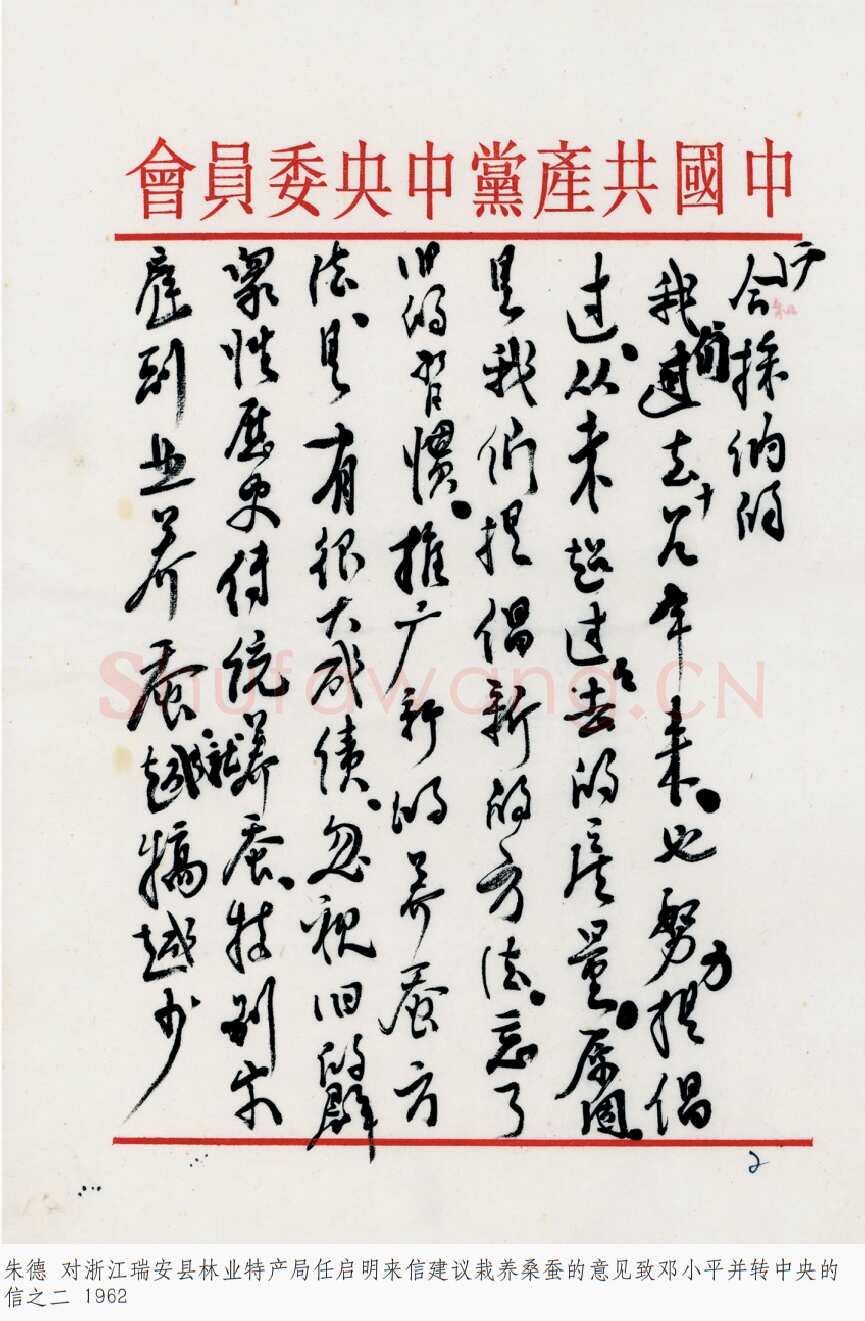 中國共產黨中央委員會
户
会採纳的
我们过去十几年来。也努力提倡
过、从未超过过去的产量。原因、
是我们提倡新的方法。忘了
旧的习惯。推广新的养蚕方
法、是有很大成绩、忽视旧的群
众性历史传统养蚕、特别家
庭副业养蚕、就越搞越少
2
Shufawang.CN
朱德 对浙江瑞安县林业特产局任启明来信建议栽养桑蚕的意见致邓小平并转中央的
信之二 1962